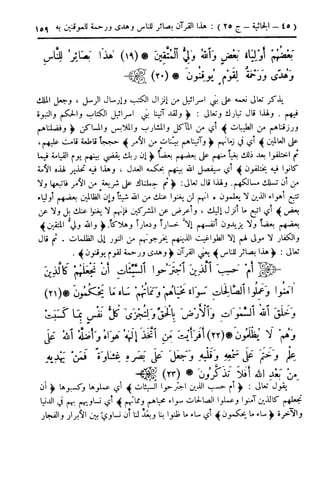 (٤٥ - الجاثية - ج ٢٥) : هذا القرآن بصائر للناس وهدى ورحمة للموقنين به ١٥٩
بَعْضُهُمْ أَوْلِيَاءُ بَعْضٍ وَاللهُ وَلِيُّ الْمُتَّقِينَ (١٩) هَٰذَا بَصَائِرُ لِلنَّاسِ
وَهُدًى وَرَحْمَةٌ لِقَوْمٍ يُوقِنُونَ (٢٠)
يذكر تعالى نعمه على بني اسرائيل من إنزال الكتب وإرسال الرسل ، وجعل الملك
فيهم . ولهذا قال تبارك وتعالى : ﴿ ولقد آتينا بني اسرائيل الكتاب والحكم والنبوة
ورزقناهم من الطيبات ﴾ أي من المآكل والمشارب والملابس والمساكن ﴿ وفضلناهم
على العالمين ﴾ أي في زمانهم ﴿ وآتيناهم بينات من الأمر ﴾ حججاً قاطعة قامت عليهم،
ثم اختلفوا بعد ذلك بغياً منهم على بعضهم بعضاً ﴿ إن ربك يقضي بينهم يوم القيامة فيما
كانوا فيه يختلفون ﴾ أي سيفصل الله بينهم بحكمه العدل ، وهذا فيه تحذير لهذه الأمة
من أن تسلك مسالكهم. ولهذا قال تعالى : ﴿ ثم جعلناك على شريعة من الأمر فاتبعها ولا
تتبع أهواء الذين لا يعلمون ۰ انهم لن يغنوا عنك من الله شيئاً وإن الظالمين بعضهم أولياء
بعض ﴾ أي اتبع ما أنزل إليك ، وأعرض عن المشركين فإنهم لا يغنوا عنك بل ولا عن
بعضهم بعضاً ولا يزيدون أنفسهم إلا خساراً ودماراً وهلاكاً. ﴿ والله ولي المتقين ﴾
والكفار لا مولى لهم إلا الطواغيت الذينهم يخرجونهم من النور إلى الظلمات . ثم قال
تعالى : ﴿ هذا بصائر للناس ﴾ يعني القرآن ﴿ وهدى ورحمة لقوم يوقنون ﴾ .
أَمْ حَسِبَ الَّذِينَ اجْتَرَحُوا السَّيِّئَاتِ أَنْ نَجْعَلَهُمْ كَالَّذِينَ
آمَنُوا وَعَمِلُوا الصَّالِحَاتِ سَوَاءً مَحْيَاهُمْ وَمَمَاتُهُمْ سَاءَ مَا يَحْكُمُونَ (٢١)
وَخَلَقَ اللهُ السَّمَوَاتِ وَالْأَرْضَ بِالْحَقِّ وَلِتُجْزَىٰ كُلُّ نَفْسٍ بِمَا كَسَبَتْ
وَهُمْ لَا يُظْلَمُونَ (٢٢) أَفَرَأَيْتَ مَنِ اتَّخَذَ إِلَٰهَهُ هَوَاهُ وَأَضَلَّهُ اللهُ عَلَى
عِلْمٍ وَخَتَمَ عَلَى سَمْعِهِ وَقَلْبِهِ وَجَعَلَ عَلَى بَصَرِهِ غِشَاوَةً فَمَنْ يَهْدِيهِ
مِنْ بَعْدِ اللهِ أَفَلَا تَذَكَّرُونَ (٢٣)
يقول تعالى : ﴿ أم حسب الذين اجترحوا السيئات ﴾ أي عملوها وكسبوها ﴿ أن
نجعلهم كالذين آمنوا وعملوا الصالحات سواء محياهم ومماتهم ﴾ أي نساويهم بهم في الدنيا
والآخرة ﴿ ساء ما يحكمون ﴾ أي ساء ما ظنوا بنا وبعُدَ لنا أن نساوي بين الأبرار والفجار